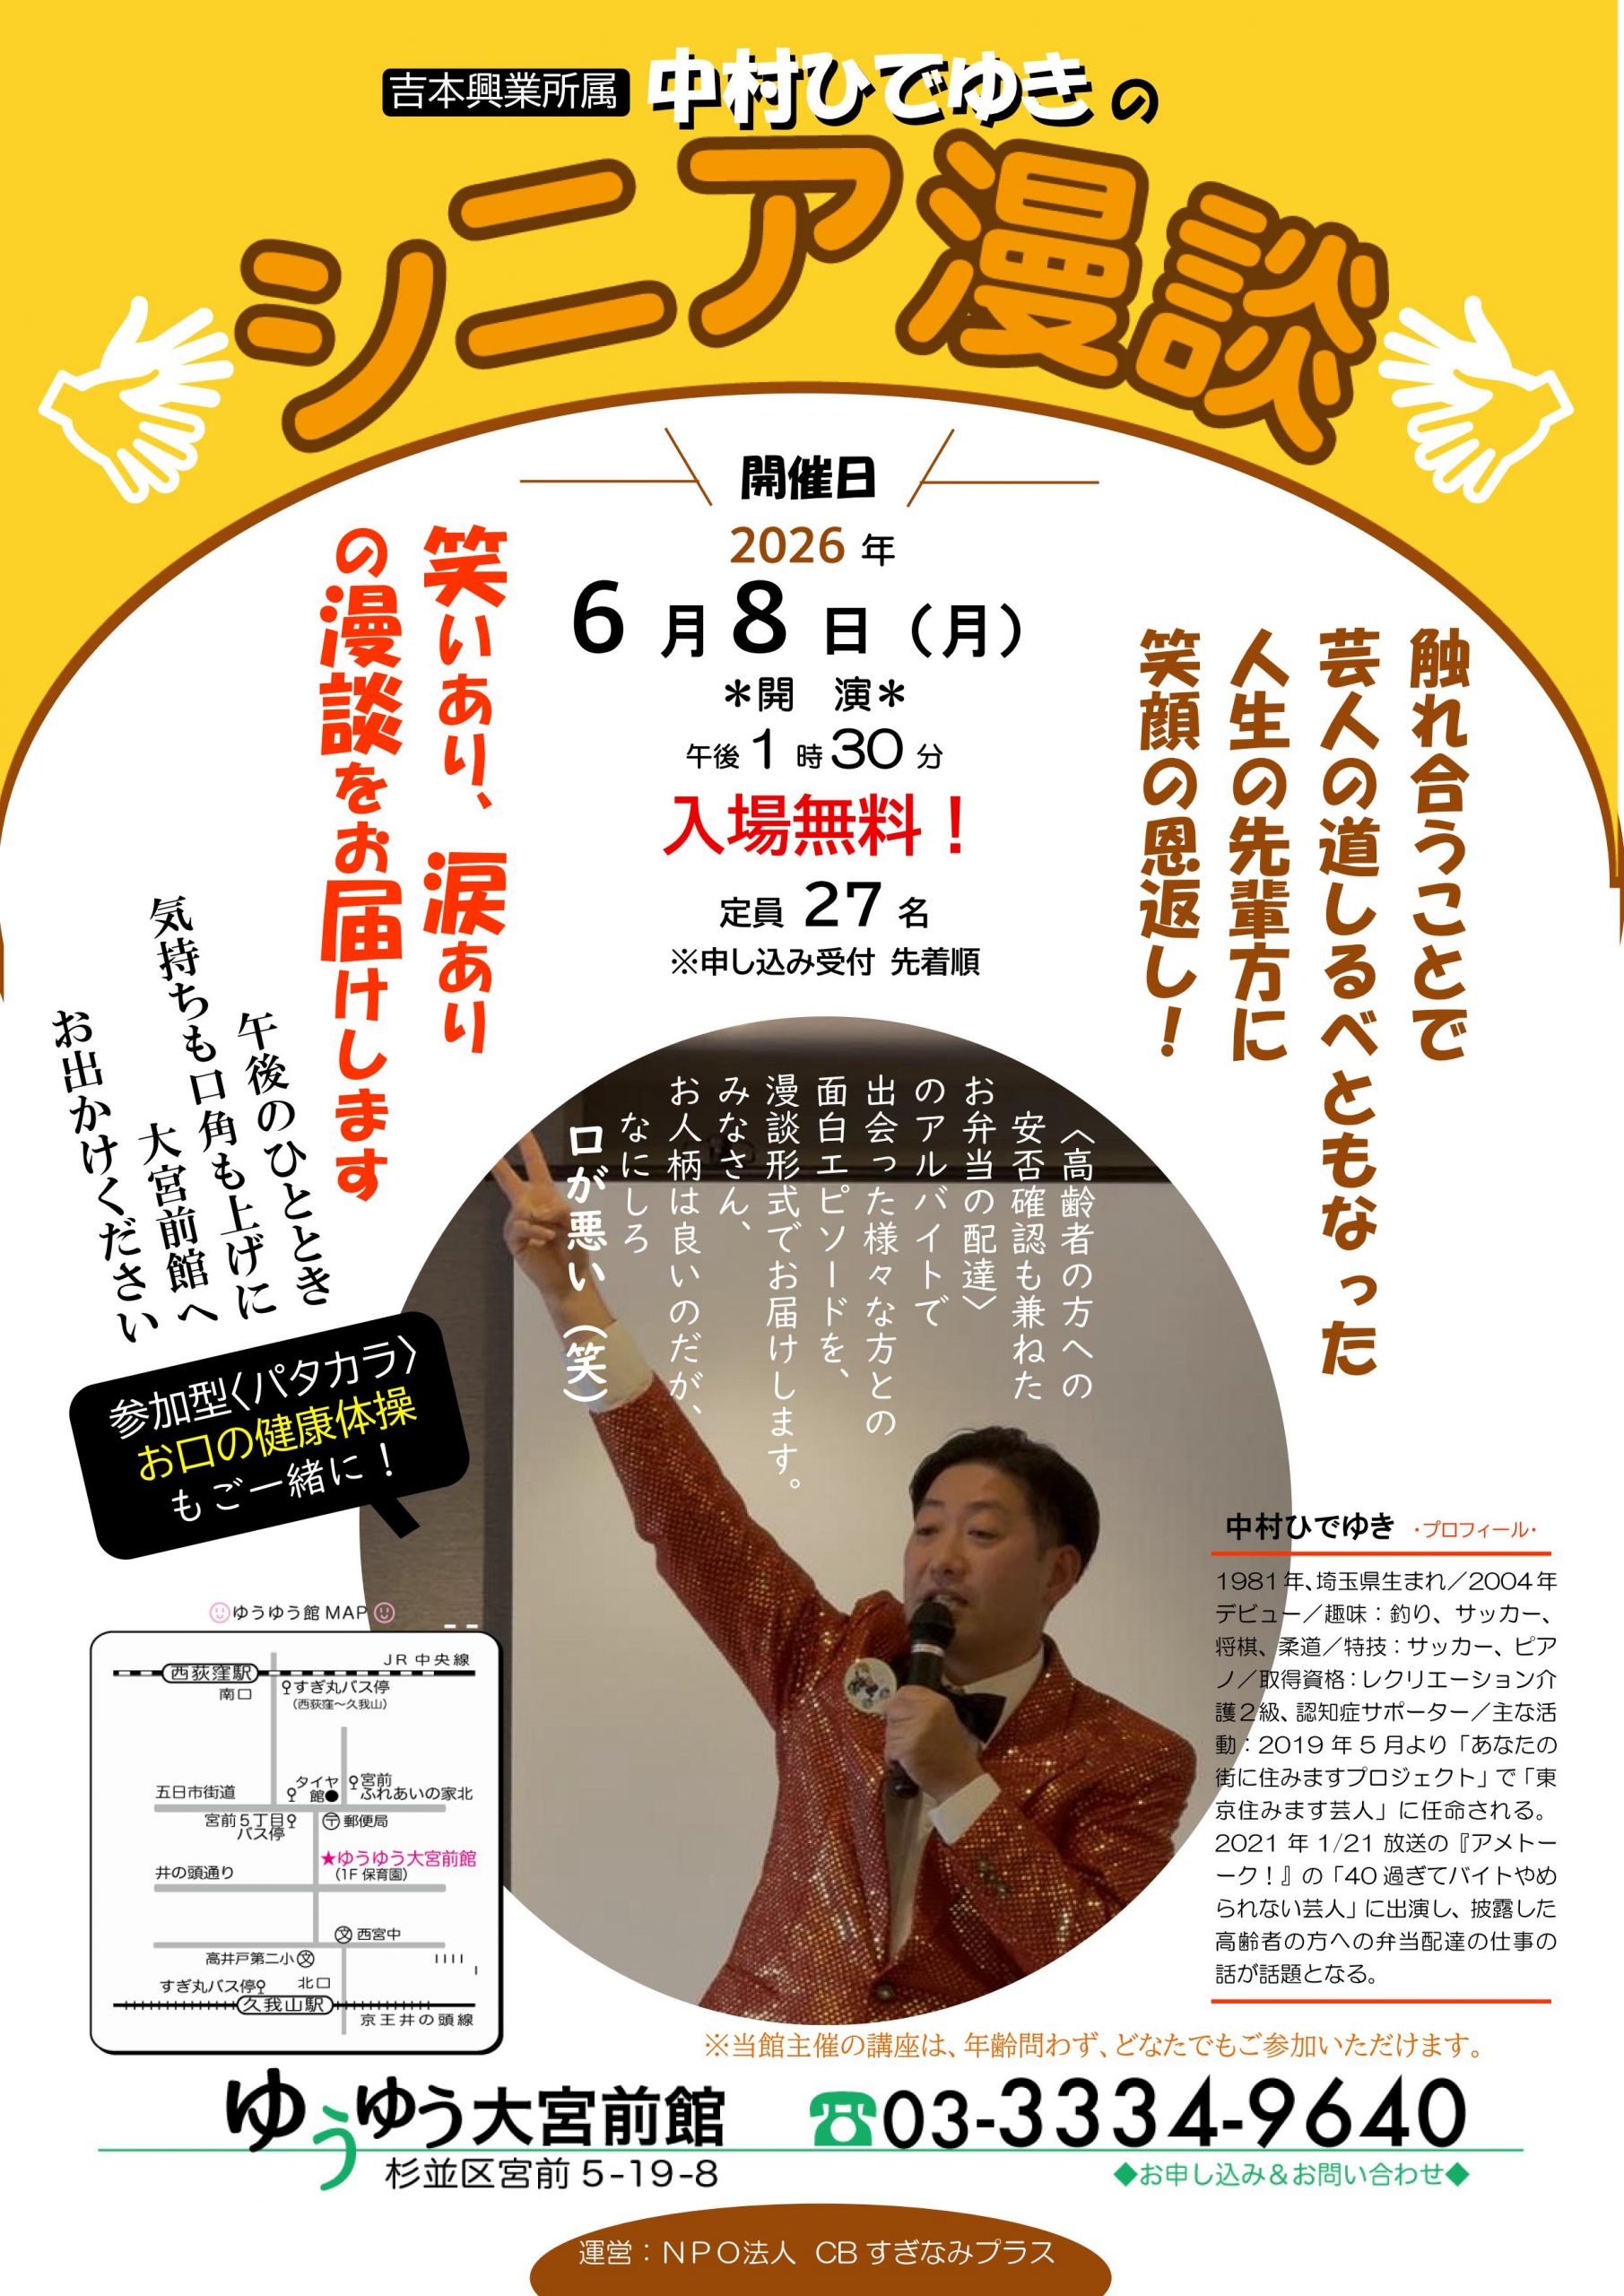 吉本興業所属 中村ひでゆきの
シニア漫談
開催日
2026年
6月8日（月）
＊開　演＊
午後1時30分
入場無料！
定員 27名
※申し込み受付 先着順
触れ合うことで
芸人の道しるべともなった
人生の先輩方に
笑顔の恩返し！
笑いあり、涙あり
の漫談をお届けします
午後のひととき
気持ちも口角も上げに
大宮前館へ
お出かけください
〈高齢者の方への
安否確認も兼ねた
お弁当の配達〉
のアルバイトで
出会った様々な方との
面白エピソードを、
漫談形式でお届けします。
みなさん、
お人柄は良いのだが、
なにしろ
口が悪い（笑）
参加型〈パタカラ〉
お口の健康体操
もご一緒に！
中村ひでゆき ・プロフィール・
1981年、埼玉県生まれ／2004年
デビュー／趣味：釣り、サッカー、
将棋、柔道／特技：サッカー、ピア
ノ／取得資格：レクリエーション介
護２級、認知症サポーター／主な活
動：2019年５月より「あなたの
街に住みますプロジェクト」で「東
京住みます芸人」に任命される。
2021年1/21放送の『アメトー
ーク！』の「40過ぎてバイトやめ
られない芸人」に出演し、披露した
高齢者の方への弁当配達の仕事の
話が話題となる。
ゆうゆう館MAP
JR中央線
西荻窪駅
南口
すぎ丸バス停
（西荻窪～久我山）
五日市街道
タイヤ
館●
宮前
ふれあいの家北
宮前５丁目
バス停
〒郵便局
★ゆうゆう大宮前館
（1F保育園）
井の頭通り
文 西宮中
高井戸第二小 文
すぎ丸バス停
北口
久我山駅
京王井の頭線
※当館主催の講座は、年齢問わず、どなたでもご参加いただけます。
ゆうゆう大宮前館
☎03-3334-9640
杉並区宮前5-19-8
◆お申し込み＆お問い合わせ◆
運営：ＮＰＯ法人 CBすぎなみプラス